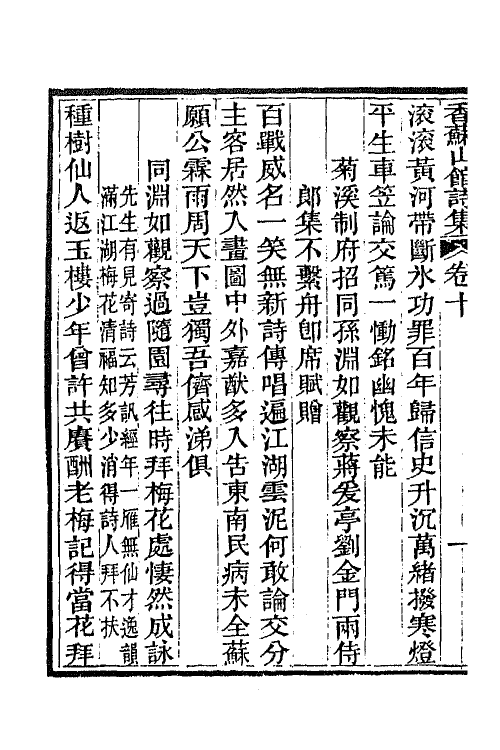 香蘇山館詩集 卷十 一
滾滾黃河帶斷氷功罪百年歸信史升沉萬緒撥寒燈
平生車笠論交篤一慟銘幽愧未能
菊溪制府招同孫淵如觀察蔣爰亭劉金門兩侍
郎集不繫舟卽席賦贈
百戰威名一笑無新詩傳唱遍江湖雲泥何敢論交分
主客居然入畫圖中外嘉猷多入告東南民病未全蘇
願公霖雨周天下豈獨吾儕感涕俱
同淵如觀察過隨園尋往時拜梅花處悽然成詠
先生有見寄詩云芳訊經年一雁無仙才逸韻
滿江湖梅花清福知多少消得詩人拜不扶
種樹仙人返玉樓少年曾許共賡酬老梅記得當花拜